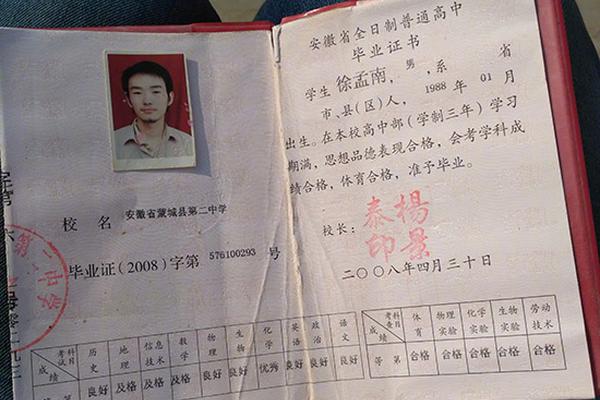 校 名 安徽省蒙城县第二中学
毕业证(2008)字第 576100293 号
第二中学
考试科目 历史 地理 信息技术 数学 物理 生物 化学 英语 政治 语文
成绩 良好 及格 及格 及格 良好 良好 优秀 良好 良好 良好
安徽省全日制普通高中
毕业证书
学生 徐孟南,男,系 省
市、县(区)人, 1988 年 01 月
出生。在本校高中部(学制三年)学习
期满,思想品德表现合格,会考学科成
绩合格,体育合格,准予毕业。
校长:
杨景泰印
二〇〇八年四月三十日
考查科目 体育 物理实验 化学实验 生物实验 劳动技术
成绩
等 第 合格 合格 合格 合格 合格